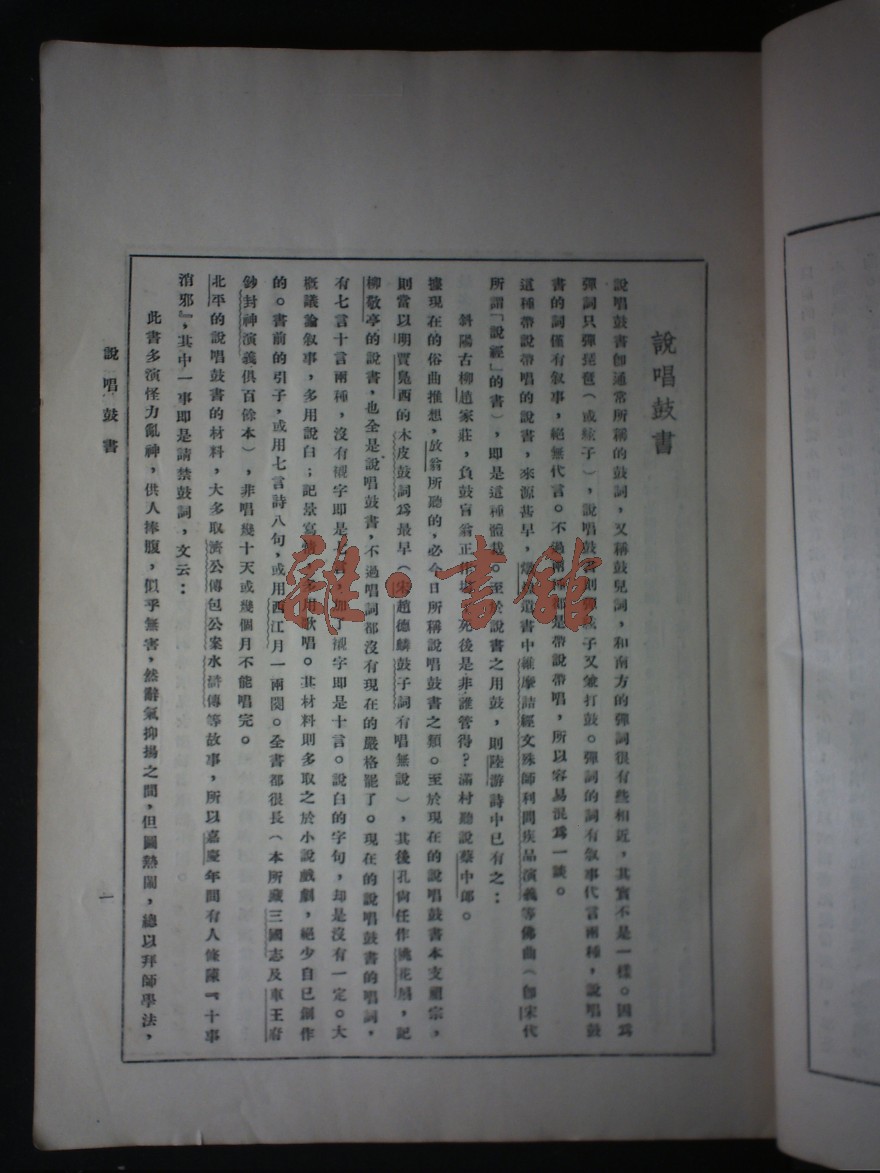 說唱鼓書
說唱鼓書卽通常所稱的鼓詞，又稱鼓兒詞，和南方的彈詞很有些相近，其實不是一樣。因爲
彈詞只彈琵琶（或絃子），說唱鼓書則彈絃子又兼打鼓。彈詞的詞有敘事代言兩種，說唱鼓
書的詞僅有敘事，絕無代言。不過兩種都是帶說帶唱，所以容易混爲一談。
這種帶說帶唱的說書，來源甚早，燉煌遺書中維摩詰經文殊師利問疾品演義等佛曲（卽宋代
所謂「說經」的書），即是這種體裁。至於說書之用鼓，則陸游詩中已有之：
斜陽古柳趙家莊，負鼓盲翁正作場，死後是非誰管得？滿村聽說蔡中郎。
據現在的俗曲推想，放翁所聽的，必今日所稱說唱鼓書之類。至於現在的說唱鼓書本支祖宗，
則當以明賈鳧西的木皮鼓詞爲最早（宋趙德麟鼓子詞有唱無說），其後孔尙任作桃花扇，記
柳敬亭的說書，也全是說唱鼓書，不過唱詞都沒有現在的嚴格罷了。現在的說唱鼓書的唱詞，
有七言十言兩種，沒有襯字即是七言，加了襯字即是十言。說白的字句，却是沒有一定。大
槪議論敘事，多用說白；記景寫情，多用歌唱。其材料則多取之於小說戲劇，絕少自己創作
的。書前的引子，或用七言詩八句，或用西江月一兩闋。全書都很長（本所藏三國志及車王府
鈔封神演義俱百餘本），非唱幾十天或幾個月不能唱完。
北平的說唱鼓書的材料，大多取濟公傳包公案水滸傳等故事，所以嘉慶年間有人條陳『十事
消邪』，其中一事即是請禁鼓詞，文云：
此書多演怪力亂神，供人捧腹，似乎無害，然辭氣抑揚之間，但圖熱鬧，總以拜師學法，
說唱鼓書
一
雜·書館